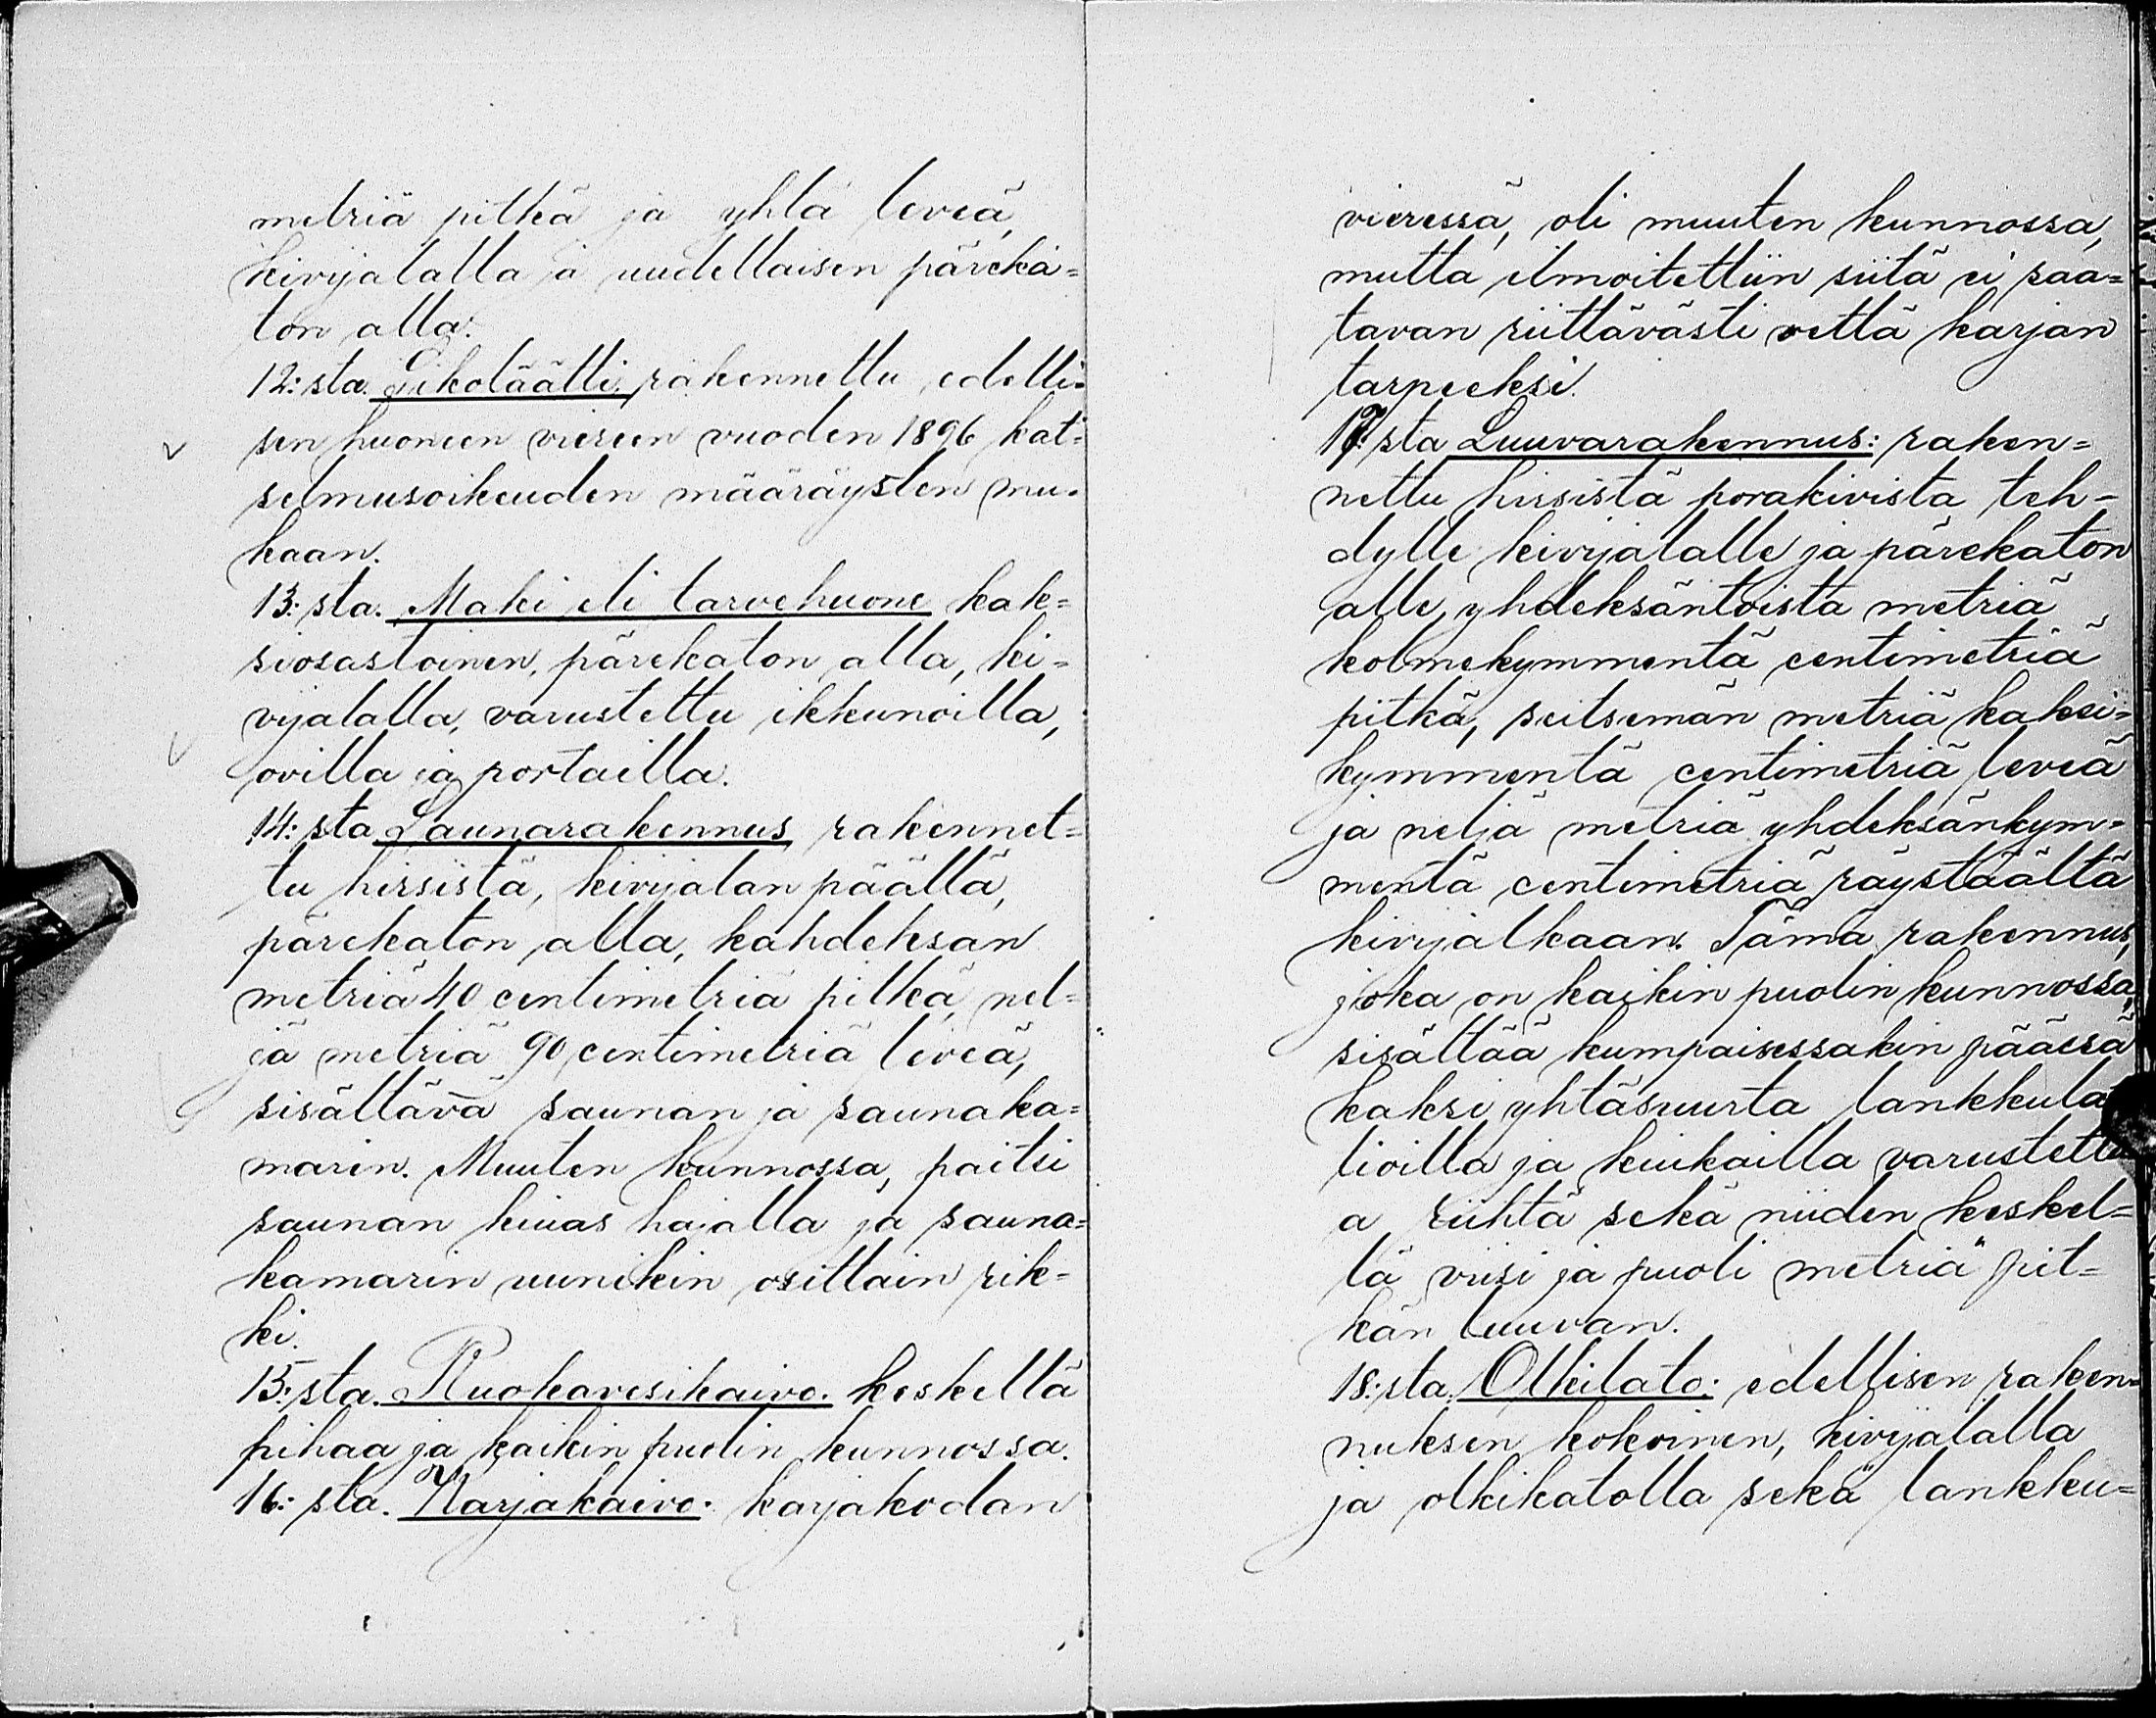 metriä pitkä ja yhtä leveä,
kivijalalla ja uudellaisen päreka=
ton alla.
12:sta. Sikoläätti, rakennettu edelli=
sen huoneen viereen vuoden 1896 kat=
selmusoikeuden määräysten mu=
kaan.
13:sta. Maki eli tarvehuone kak=
siosastoinen, pärekaton alla, ki=
vijalalla, varustettu ikkunoilla,
ovilla ja portailla.
14:sta Saunarakennus, rakennet=
tu hirsistä, kivijalan päällä,
pärekaton alla, kahdeksan
metriä 40 centimetriä pitkä, nel=
jä metriä 90 centimetriä leveä,
sisältävä saunan ja saunaka=
marin. Muuten kunnossa, paitsi
saunan kiuas hajalla ja sauna=
kamarin uunikin osittain rik=
ki.
15:sta. Ruokavesikaivo. keskellä
pihaa ja kaikin puolin kunnossa.
16:sta. Karjakaivo. karjakodan
vieressä, oli muuten kunnossa,
mutta ilmoitettiin siitä ei saa=
tavan riittävästi vettä karjan
tarpeeksi.
17:sta Luuvarakennus: raken=
nettu hirsistä porakivista teh=
dylle kivijalalle ja pärekaton
alle, yhdeksäntoista metriä
kolmekymmentä centimetriä
pitkä, seitsemän metriä kaksi=
kymmentä centimetriä leveä
ja neljä metriä yhdeksänkym=
mentä centimetriä räystäältä
kivijalkaan. Tämä rakennus,
joka on kaikin puolin kunnossa,
sisältää kumpaisessakin päässä
kaksi yhtäsuurta lankkula
tioilla ja kiukailla varustettu
a riihtä sekä niiden keskel=
lä viisi ja puoli metriä pit=
kän luuvan.
18:sta. Olkilato: edellisen raken=
nuksen kokoinen, kivijalalla
ja olkikatolla sekä lankku=